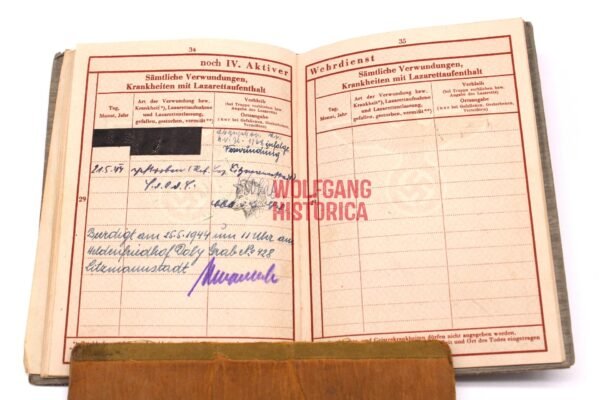 34
noch IV. Aktiver
Sämtliche Verwundungen,
Krankheiten mit Lazarettaufenthalt
Tag, Monat, Jahr
Art der Verwundung bzw. Krankheit*), Lazarettaufnahme und Lazarettentlassung, gefallen, gestorben, vermißt**)
Verbleib
(bei Truppe verblieben bzw. Angabe des Lazaretts)
Ortsangabe
(nur bei Gefallenen, Gestorbenen, Vermißten)
Verwundung
21.5.44 gestorben
29
Beerdigt am 25.5.1944 um 11 Uhr am
Heldenfriedhof Doly Grab No 428
Litzmannstadt
35
Wehrdienst
Sämtliche Verwundungen,
Krankheiten mit Lazarettaufenthalt
Tag, Monat, Jahr
Art der Verwundung bzw. Krankheit*), Lazarettaufnahme und Lazarettentlassung, gefallen, gestorben, vermißt**)
Verbleib
(bei Truppe verblieben bzw. Angabe des Lazaretts)
Ortsangabe
(nur bei Gefallenen, Gestorbenen, Vermißten)
und Geisteskrankheiten dürfen nicht angegeben werden.
und Ort des Todes eintragen
WOLFGANG
HISTORICA